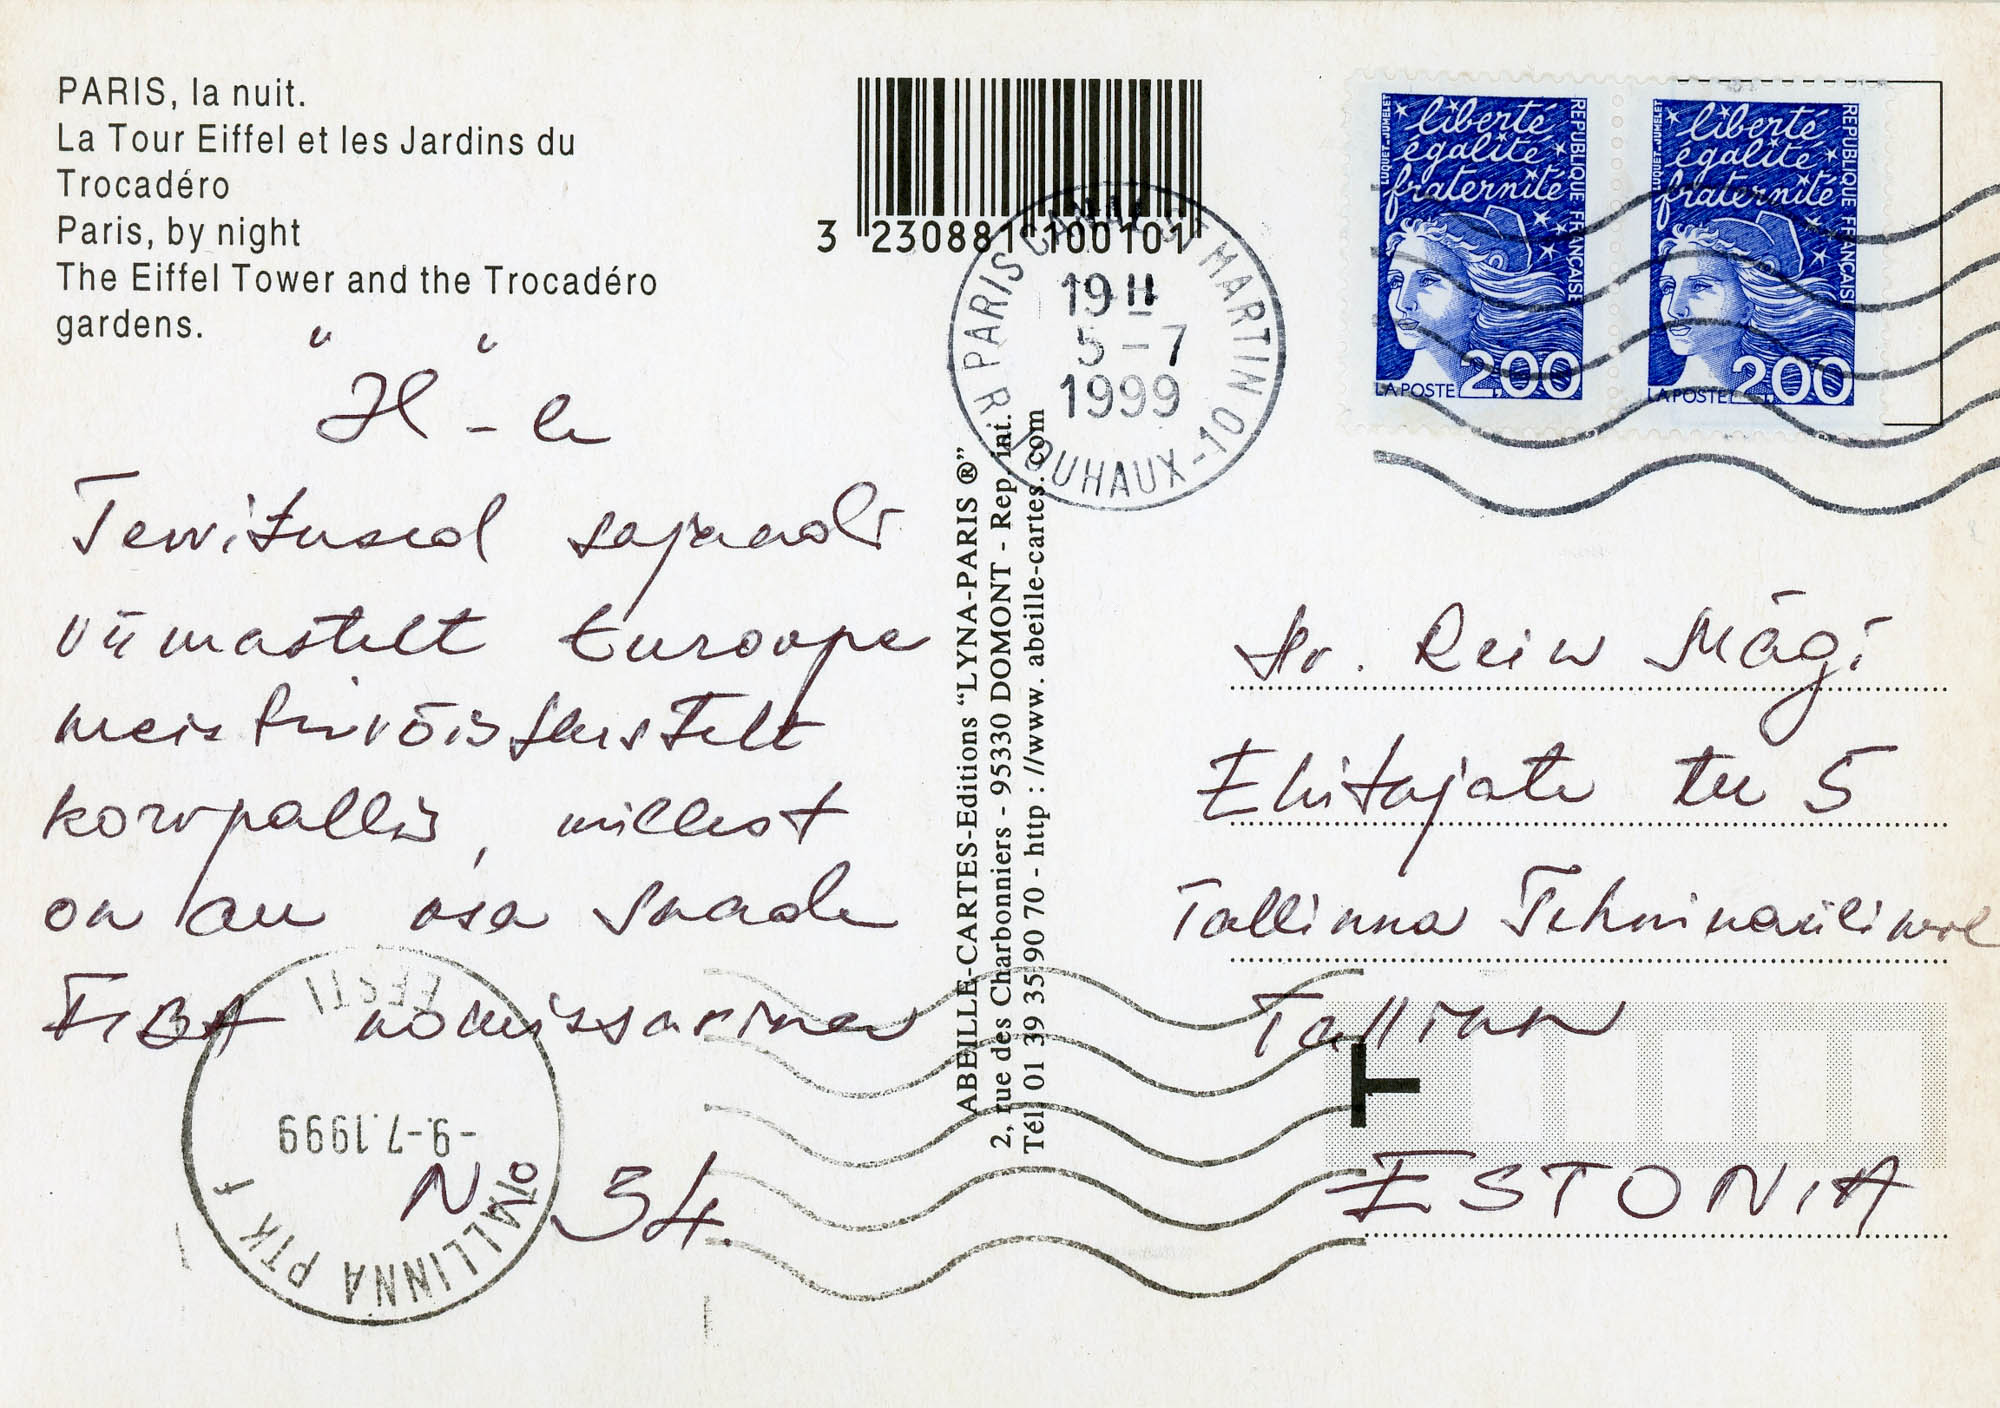 PARIS, la nuit.
La Tour Eiffel et les Jardins du
Trocadéro
Paris, by night
The Eiffel Tower and the Trocadéro
gardens.
"H"-le
Tervitused sajandi
viimastelt Euroopa
meistrivõistlustelt
korvpallis, millest
on au osa saada
FIBA komissarina
No 54.
3 230881 100101
ABEILLE-CARTES-Editions "LYNA-PARIS ®"
2, rue des Charbonniers - 95330 DOMONT - Rep. ini.
Tél 01 39 35 90 70 - http : //www. abeille-cartes. com
PARIS CANAL ST MARTIN
19 H
5-7
1999
R BOUHAUX-10
liberté
égalité
fraternité
REPUBLIQUE FRANÇAISE
LUQUET-JUMELET
LA POSTE 2,00
liberté
égalité
fraternité
REPUBLIQUE FRANÇAISE
LUQUET-JUMELET
LA POSTE 2,00
Hr. Rein Mägi
Ehitajate tee 5
Tallinna Tehnikaülikool
Tallinn
T
ESTONIA
EESTI
-9.-7.1999
TALLINNA PTK f